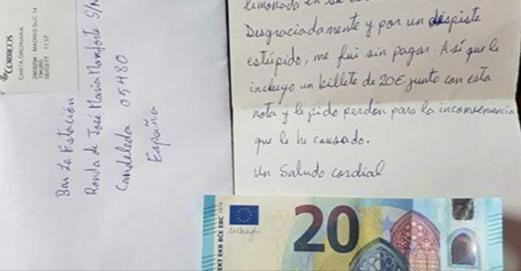 CORREOS
CARTA ORDINARIA
Bar La Estación
Ronda de José María Monforte S/N
Candeleda 05480
España
limonada en su
Desgraciadamente y por un despiste
estúpido, me fui sin pagar. Así que le
incluyo un billete de 20€ junto con esta
nota y le pido perdón para la inconveniencia
que le he causado.
Un Saludo cordial
20